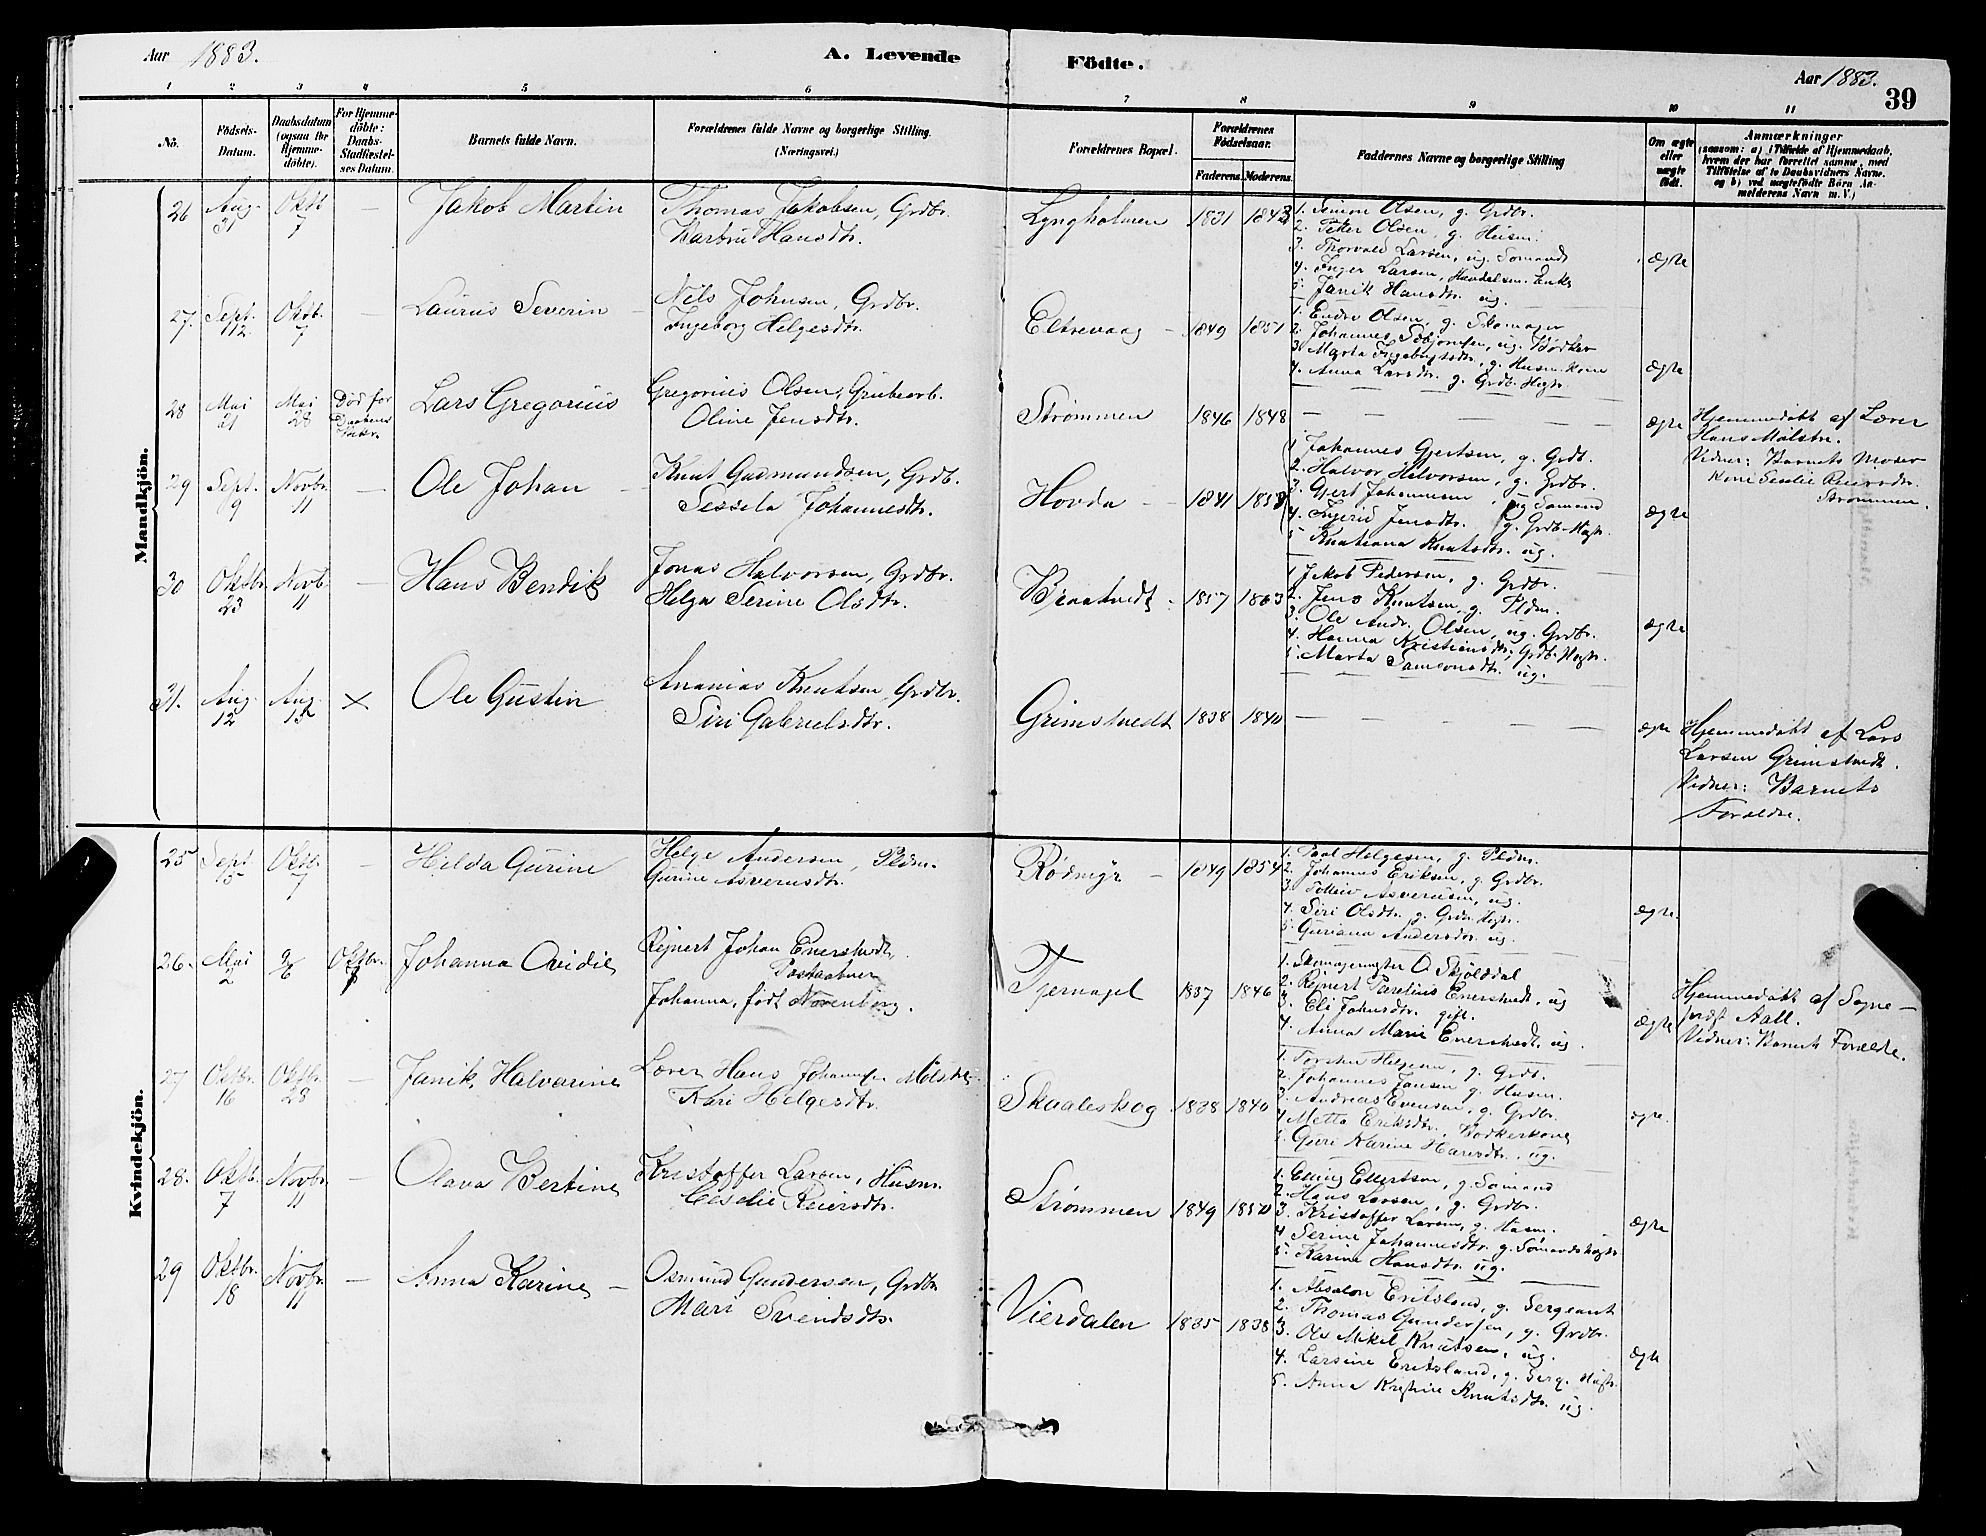 Aar 1883.
A. Levende
Födte.
Aar 1883.
39
1 2 3 4 5 6 7 8 9 10 11
No.
Födsels-Datum.
Daabsdatum (ogsaa for Hjemme-döbte).
For Hjemme-döbte: Daabs-Stadfæstel-ses Datum.
Barnets fulde Navn.
Forældrenes fulde Navne og borgerlige Stilling. (Næringsvei.)
Forældrenes Bopæl.
Forældrenes Födselsaar.
Faderens. Moderens.
Faddernes Navne og borgerlige Stilling
Om ægte eller uægte födt.
Anmærkninger
(saasom: a) i Tilfælde af Hjemmedaab, hvem der har forrettet samme, med Tilföielse af to Daabsvidners Navne. og b) ved uægtefödte Börn An-melderens Navn m. V.)
Mandkjön.
26 Aug. 31 Oktb 7 — Jakob Martin
Thomas Jakobsen, Grdbr.
Barbru Hansdtr.
Lyngholmen 1831 1843
1. Simon Olsen, g. Grdbr.
2. Petter Olsen, g. Husm.
3. Thorvald Larsen, ug. Sömand
4. Inger Larsen, Handelsm. Enke
5. Janik Hansdtr. ug.
ægte
27. Sept. 12 Oktb. 7 — Laurus Severin —
Nils Johnsen, Grdbr.
Ingeborg Helgesdtr.
Eltrevaag — 1849 1851
1. Endre Olsen, g. Skomager
2. Johannes Sæbjörnsen, ug. Bödker
3. Marta Ingebrigtsdtr., g. Husm. kone
4. Anna Larsdtr. g. Grdb. Hustr.
ægte
28 Mai 21 Mai 28 Död för Daabens
Lars Gregorius
Gregorius Olsen, Grubearb.
Oline Jensdtr.
Strømmen 1846 1848 — — — — ægte
Hjemmedøbt af Lærer
Hans Mölstre.
Vidner: Barnets Moder
Kone Seselie Reiersdr.
Strømmen.
29 Sept. 9 Novbr. 11 — Ole Johan —
Knut Gudmundsen, Grdb.
Sessela Johannesdtr.
Hovda — 1841 1858
1. Johannes Gjertsen, g. Grdb.
2. Halvor Halvorsen, g. Grdbr.
3. Gjert Johannesen, ug Sömand
4. Ingrid Jensdtr. g. Grdb. Hustr.
5 Knutiana Knutsdtr. ug.
ægte
30 Oktbr. 23 Novb. 11 — Hans Bendik
Jonas Halvorsen, Grdbr.
Helga Serine Olsdtr.
1857 1863
1. Jakob Pedersen, g. Grdbr.
2. Jens Knutsen, g. Pldm.
3. Ole Andr. Olsen, ug. Grdbr.
4. Hanna Kristiansdtr, Grdb. Hustr.
5. Marta Samsonsdtr. ug.
ægte
31. Aug. 12 Aug. 15 × Ole Gustin
Ananias Knutsen, Grdbr.
Siri Gabrielsdtr.
Grimstvedt 1838 1840 — — — — ægte
Hjemmedøbt af Lars
Larsen Grimstvedt.
Vidner: Barnets
Forældre.
Kvindekjön.
25 Sept. 15 Oktbr. 7 — Hilda Gurine
Helge Andersen, Pldm.
Gurine Asversdtr.
Rødmyr — 1849 1854
1. Paal Helgesen, g. Pldm.
2. Johannes Eriksen, g. Grdbr.
3. Tolleiv Asversen, ug.
4. Siri Olsdtr. g. Grdb. Hustr.
5. Guriana Andersdtr. ug.
ægte.
26. Mai 2 Oktbr. 7 Johanna Ovidie
Rejnert Johan Enerstvedt,
Postaabner
Johanna, født Norenberg.
Tjernagel 1837 1846
1. Skomagermster O. Skjölddal
2. Rejnert Parelius Enerstvedt, ug
3. Eli Johnsdtr. gift.
4. Anna Marie Enerstvedt. ug.
ægte
Hjemmedøbt af Sogne-
præst Aall.
Vidner: Barnets Forældre.
27 Oktbr. 16 Oktbr. 28 — Janik Halvarine
Lærer Hans Johannesen Mölstre
Kari Helgesdtr.
Skaaleskog 1838 1840
1. Torsten Helgesen, g. Grdb.
2. Johannes Jansen g. Husm.
3. Andreas Evensen, g. Grdbr.
4 Metta Eriksdtr. Bødkerkone
5. Guri Karine Hansdtr. ug.
ægte.
28. Oktb. 7 Novbr. 11 — Olava Bertine
Kristoffer Larsen, Husm.
Ceselie Reiersdtr.
Strømmen 1849 1850
1. Elling Ellertsen, g. Sömand
2. Hans Larsen, g. Grdbr.
3. Kristoffer Larsen, g. Husm.
4 Serine Johannesdtr. g. Sömandshustr
5. Karine Hansdtr. ug.
ægte
29 Oktbr. 18 Novbr. 11 — Anna Karine —
Osmund Gundersen, Grdbr
Mari Svendsdtr.
Vierdalen 1835 1838
1. Absalon Eritsland, g. Sergeant
2. Thomas Gundersen, g. Grdbr.
3. Ole Mikel Knutsen, ug.
4. Larsine Eritsland, g. Serg. Hustr.
5. Anna Kristine Knutsdtr. ug.
ægte